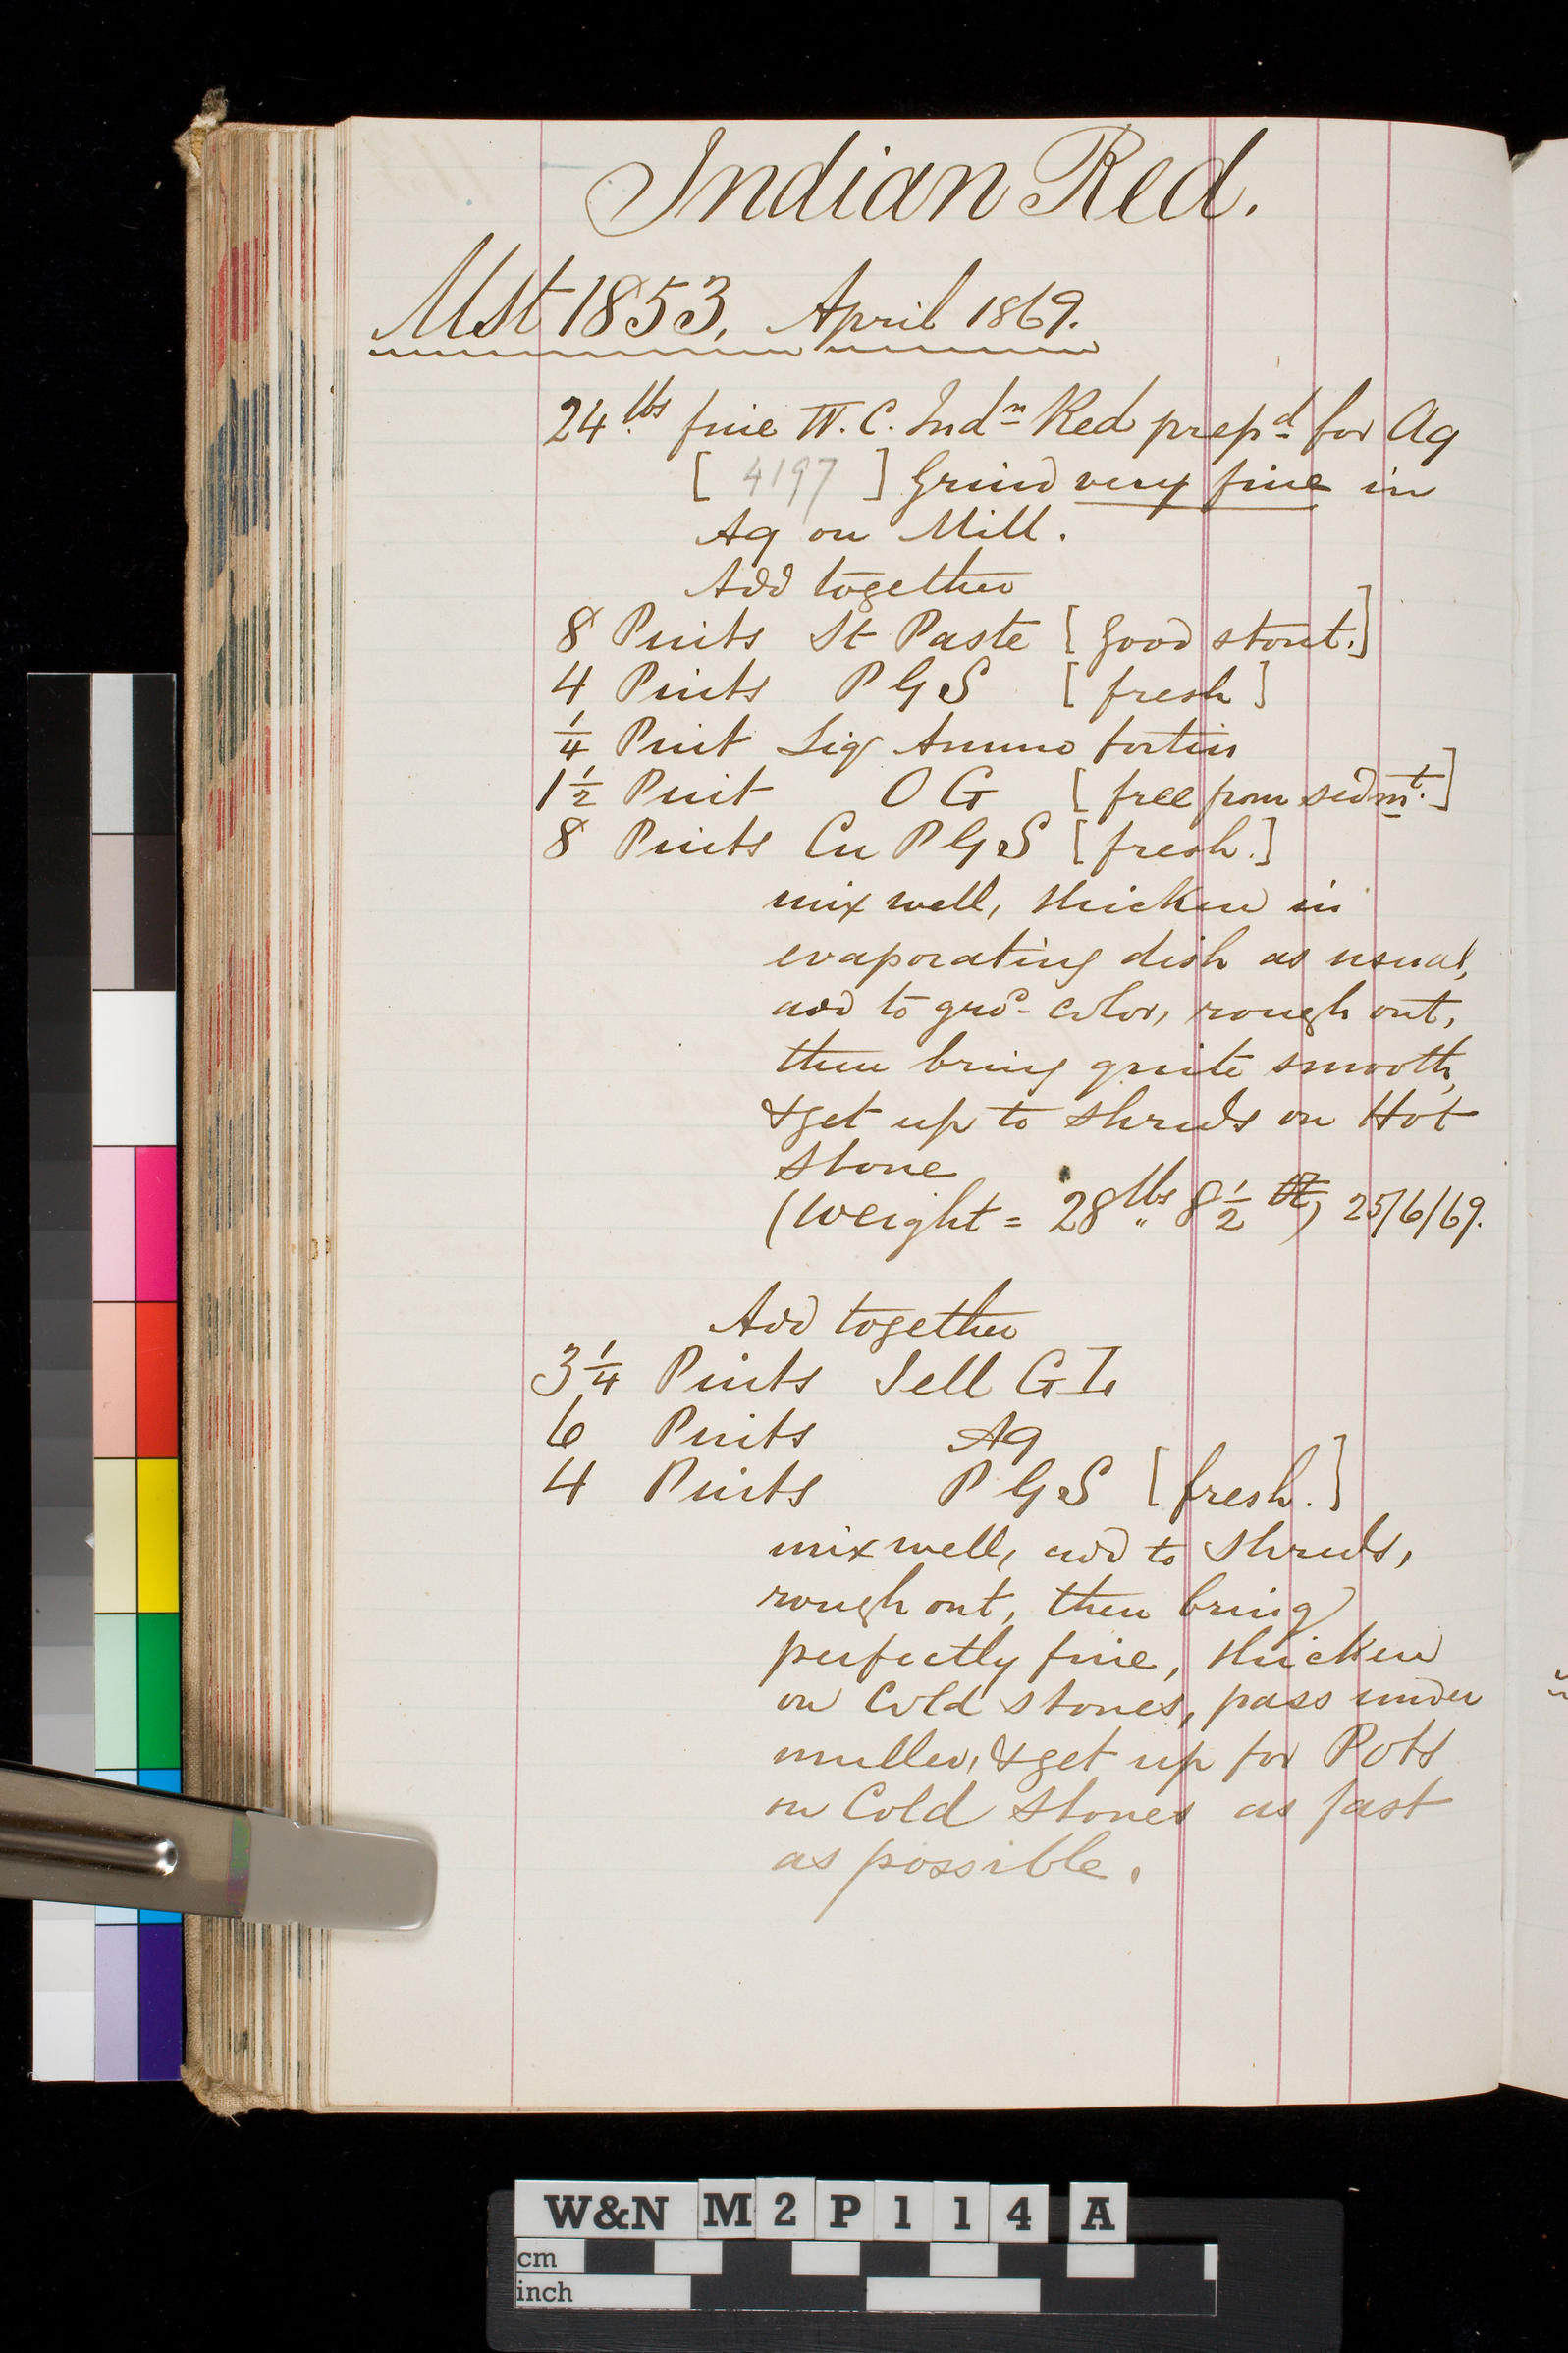 Indian Red.
Mst 1853, April 1869.
24 lbs fine W.C. Indn Red prepd for Aq
[ 4197 ] Grind very fine in
Aq on Mill.
Add together
8 Pints St Paste [ good stout.]
4 Pints P G S [ fresh ]
1/4 Pint Liq Ammo fortis
1 1/2 Pint O G [ free from sedmt.]
8 Pints Cu P G S [ fresh.]
mix well, thicken in
evaporating dish as usual,
add to grd color, rough out,
then bring quite smooth,
& get up to shreds on Hot
Stone
(Weight = 28 lbs 8 1/2 ) 25/6/69.
Add together
3 1/4 Pints
6 Pints Aq
4 Pints P G S [ fresh.]
mix well, add to Shreds,
rough out, then bring
perfectly fine, thicken
on Cold stones, pass under
muller, & get up for Pots
on Cold Stones as fast
as possible.
W&N M 2 P 1 1 4 A
cm
inch